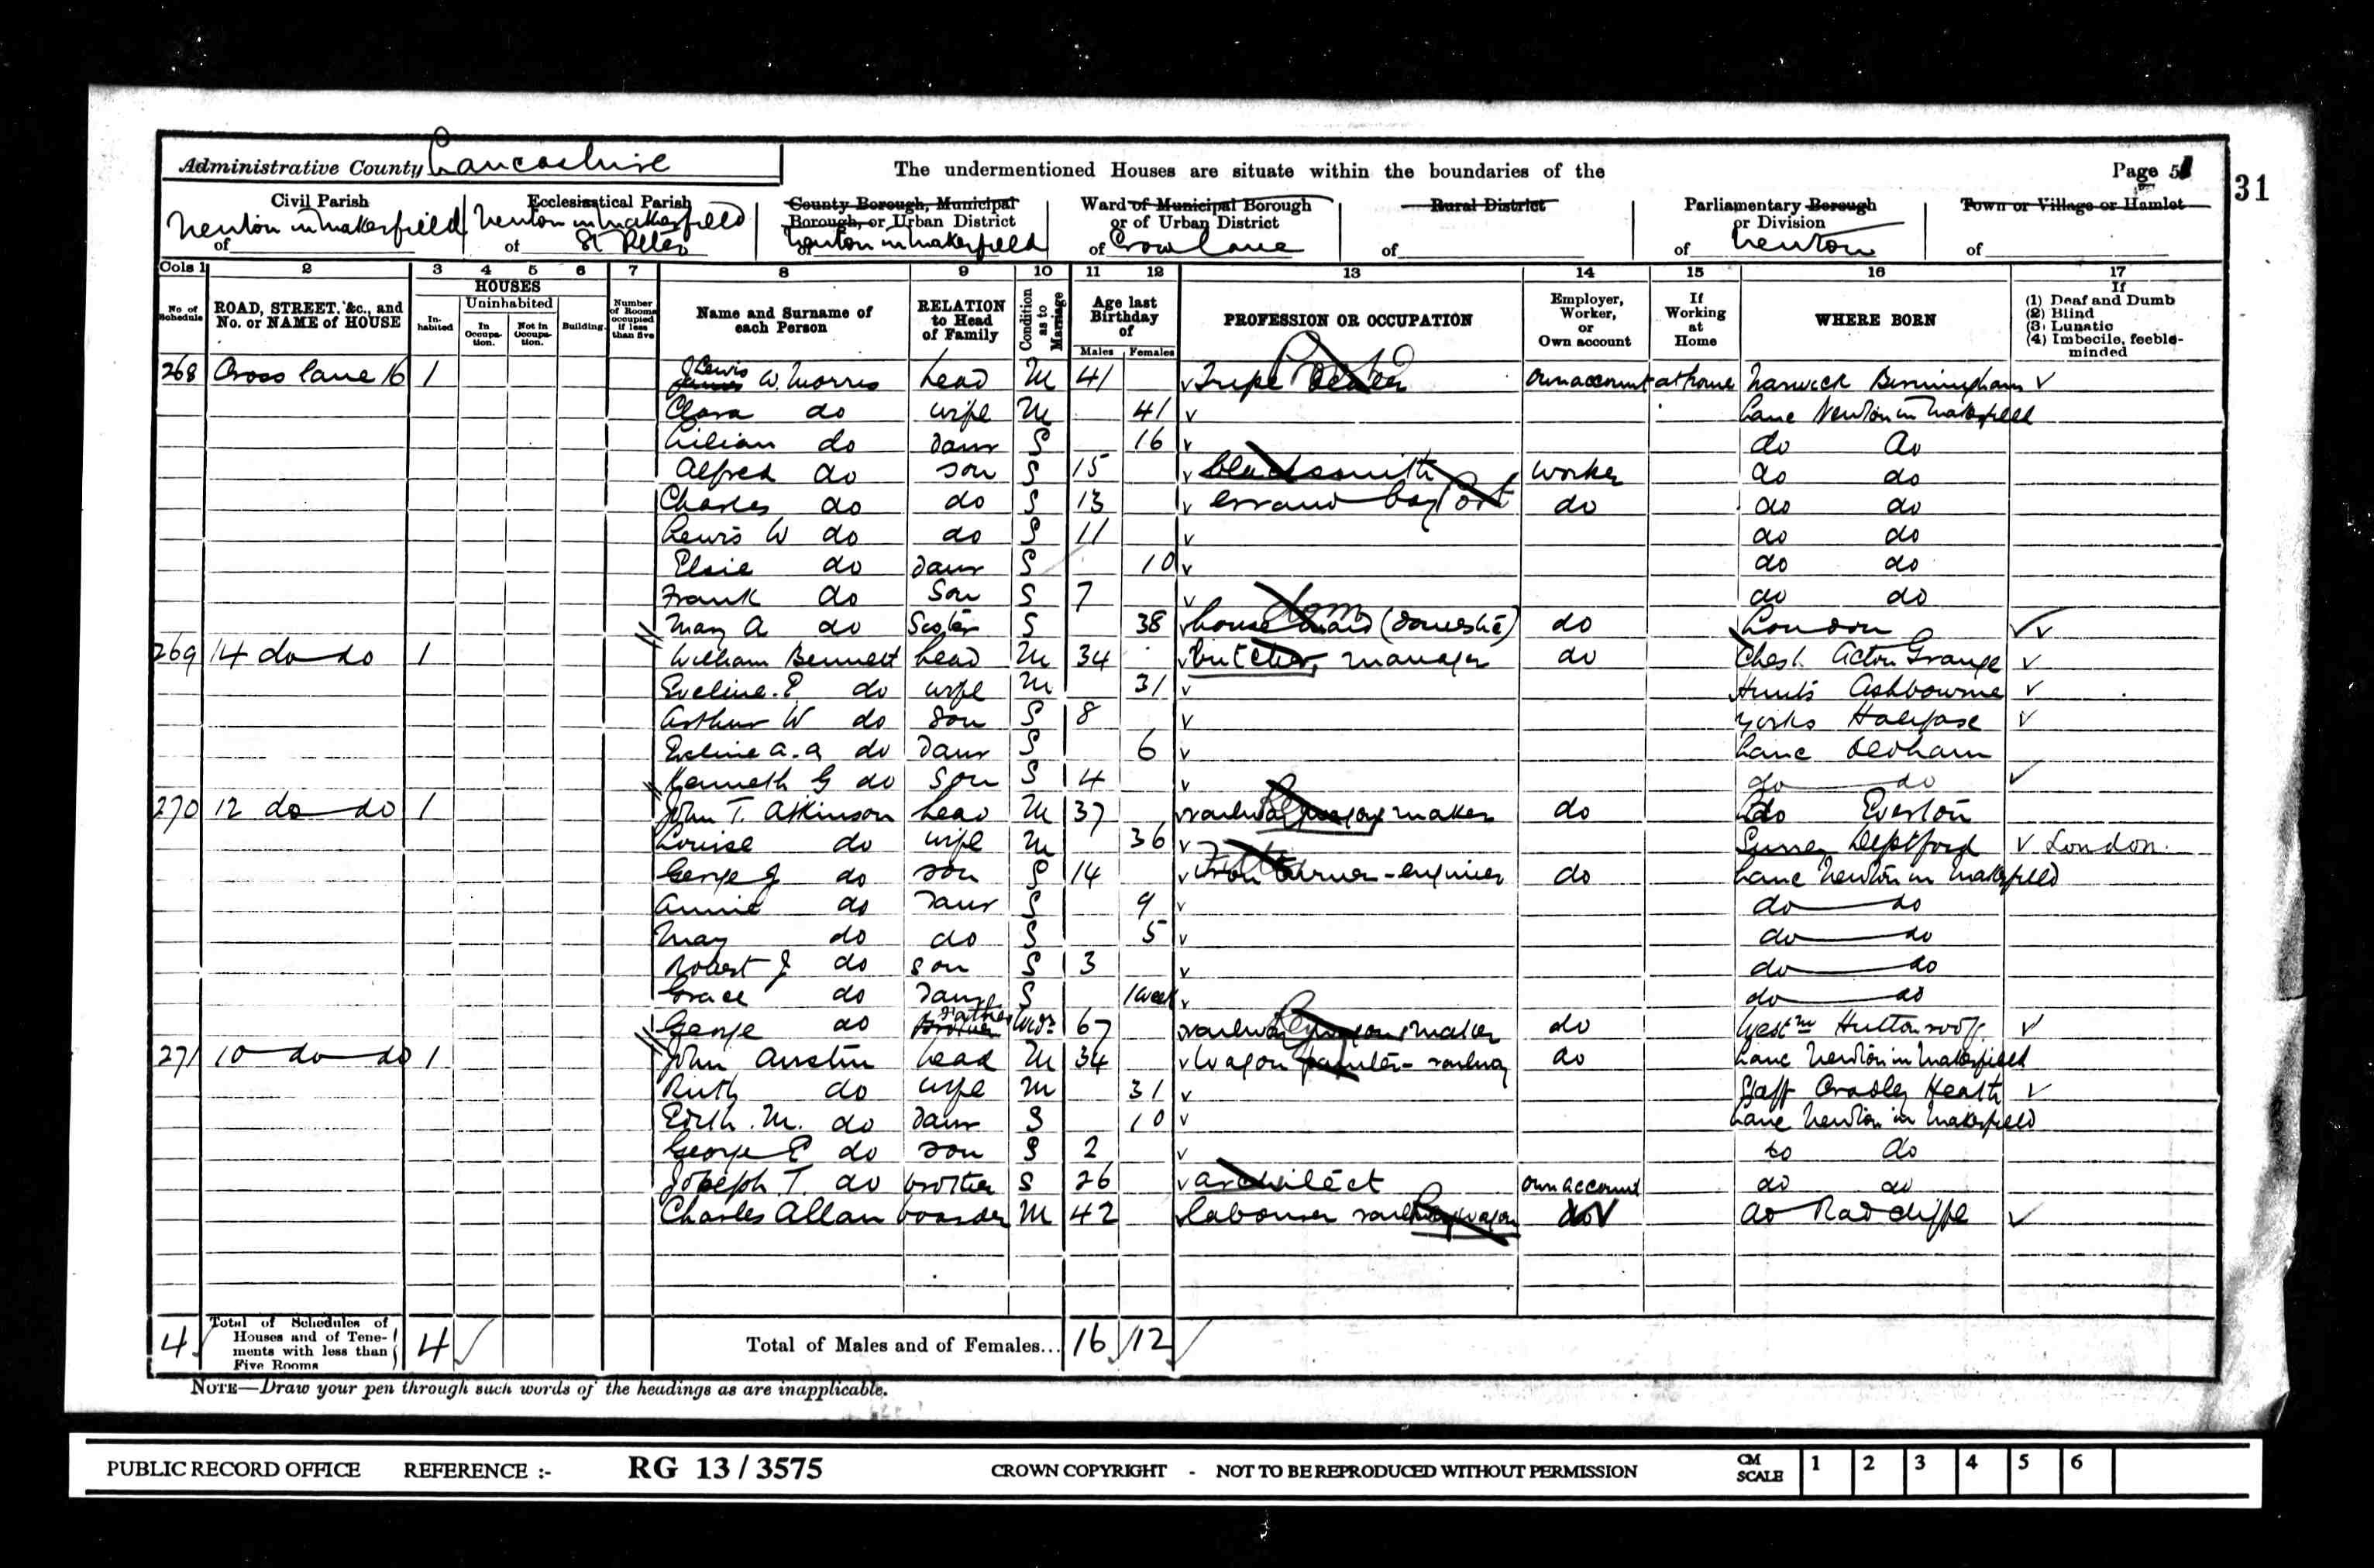 Administrative County Lancashire
The undermentioned Houses are situate within the boundaries of the
Page 51
31
Civil Parish of Newton in Makerfield
Ecclesiastical Parish of Newton in Makerfield St Peter
County Borough, Municipal Borough, or Urban District of Newton in Makerfield
Ward of Municipal Borough or of Urban District of Crow Lane
Rural District of
Parliamentary Borough or Division of Newton
Town or Village or Hamlet of
Cols 1 2 3 4 5 6 7 8 9 10 11 12 13 14 15 16 17
No of Schedule
ROAD, STREET, &c., and No. or NAME of HOUSE
HOUSES
Inhabited
Uninhabited
In Occupation.
Not in Occupation.
Building.
Number of Rooms occupied if less than five
Name and Surname of each Person
RELATION to Head of Family
Condition as to Marriage
Age last Birthday of
Males Females
PROFESSION OR OCCUPATION
Employer, Worker, or Own account
If Working at Home
WHERE BORN
If
(1) Deaf and Dumb
(2) Blind
(3) Lunatic
(4) Imbecile, feeble-minded
268 Cross lane 16 1 Lewis W. Morris head M 41 Tripe Dealer own account at home Warwick Birmingham
Clara do wife M 41 Lanc Newton in Makerfield
Lilian do daur S 16 do do
Alfred do son S 15 blacksmith worker do do
Charles do do S 13 errand boy do do do
Lewis W do do S 11 do do
Elsie do daur S 10 do do
Frank do Son S 7 do do
Mary A do Sister S 38 house maid (domestic) do London
269 14 do do 1 William Bennett head M 34 butcher, manager do Ches. Acton Grange
Eveline. E do wife M 31 Hunts Ashbourne
Arthur W do son S 8 Yorks Halifax
Eveline A. A do daur S 6 Lanc Oldham
Kenneth G do Son S 4 do do
270 12 do do 1 John T. Atkinson head M 37 railway wagon maker do do Everton
Louise do wife M 36 Surrey Deptford London
George J do son S 14 Iron turner-engineer do Lanc Newton in Makerfield
Annie do daur S 9 do do
May do do S 5 do do
Robert J do son S 3 do do
Grace do daur S 1 week do do
George do father Widr 67 railway wagon maker do Westm Hutton roof
271 10 do do 1 John Austin head M 34 Wagon painter - railway do Lanc Newton in Makerfield
Ruth do wife M 31 Staff Cradley Heath
Edith. M. do daur S 10 Lanc Newton in Makerfield
George E do son S 2 do do
Joseph T. do brother S 26 architect own account do do
Charles Allan boarder M 42 labourer railway wagon do do Radcliffe
4 Total of Schedules of Houses and of Tenements with less than Five Rooms 4 Total of Males and of Females... 16 12
NOTE—Draw your pen through such words of the headings as are inapplicable.
PUBLIC RECORD OFFICE REFERENCE :- RG 13 / 3575 CROWN COPYRIGHT - NOT TO BE REPRODUCED WITHOUT PERMISSION CM SCALE 1 2 3 4 5 6